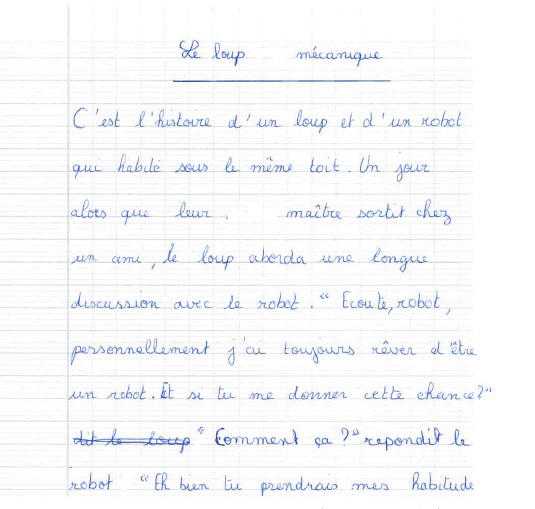 Le loup mécanique
C'est l'histoire d'un loup et d'un robot
qui habite sous le même toit. Un jour
alors que leur . maître sortit chez
un ami, le loup aborda une longue
discussion avec le robot. "Ecoute, robot,
personnellement j'ai toujours rêver d'être
un robot. Et si tu me donner cette chance?"
dit le loup "Comment ça ?" repondit le
robot "Eh bien tu prendrais mes habitude